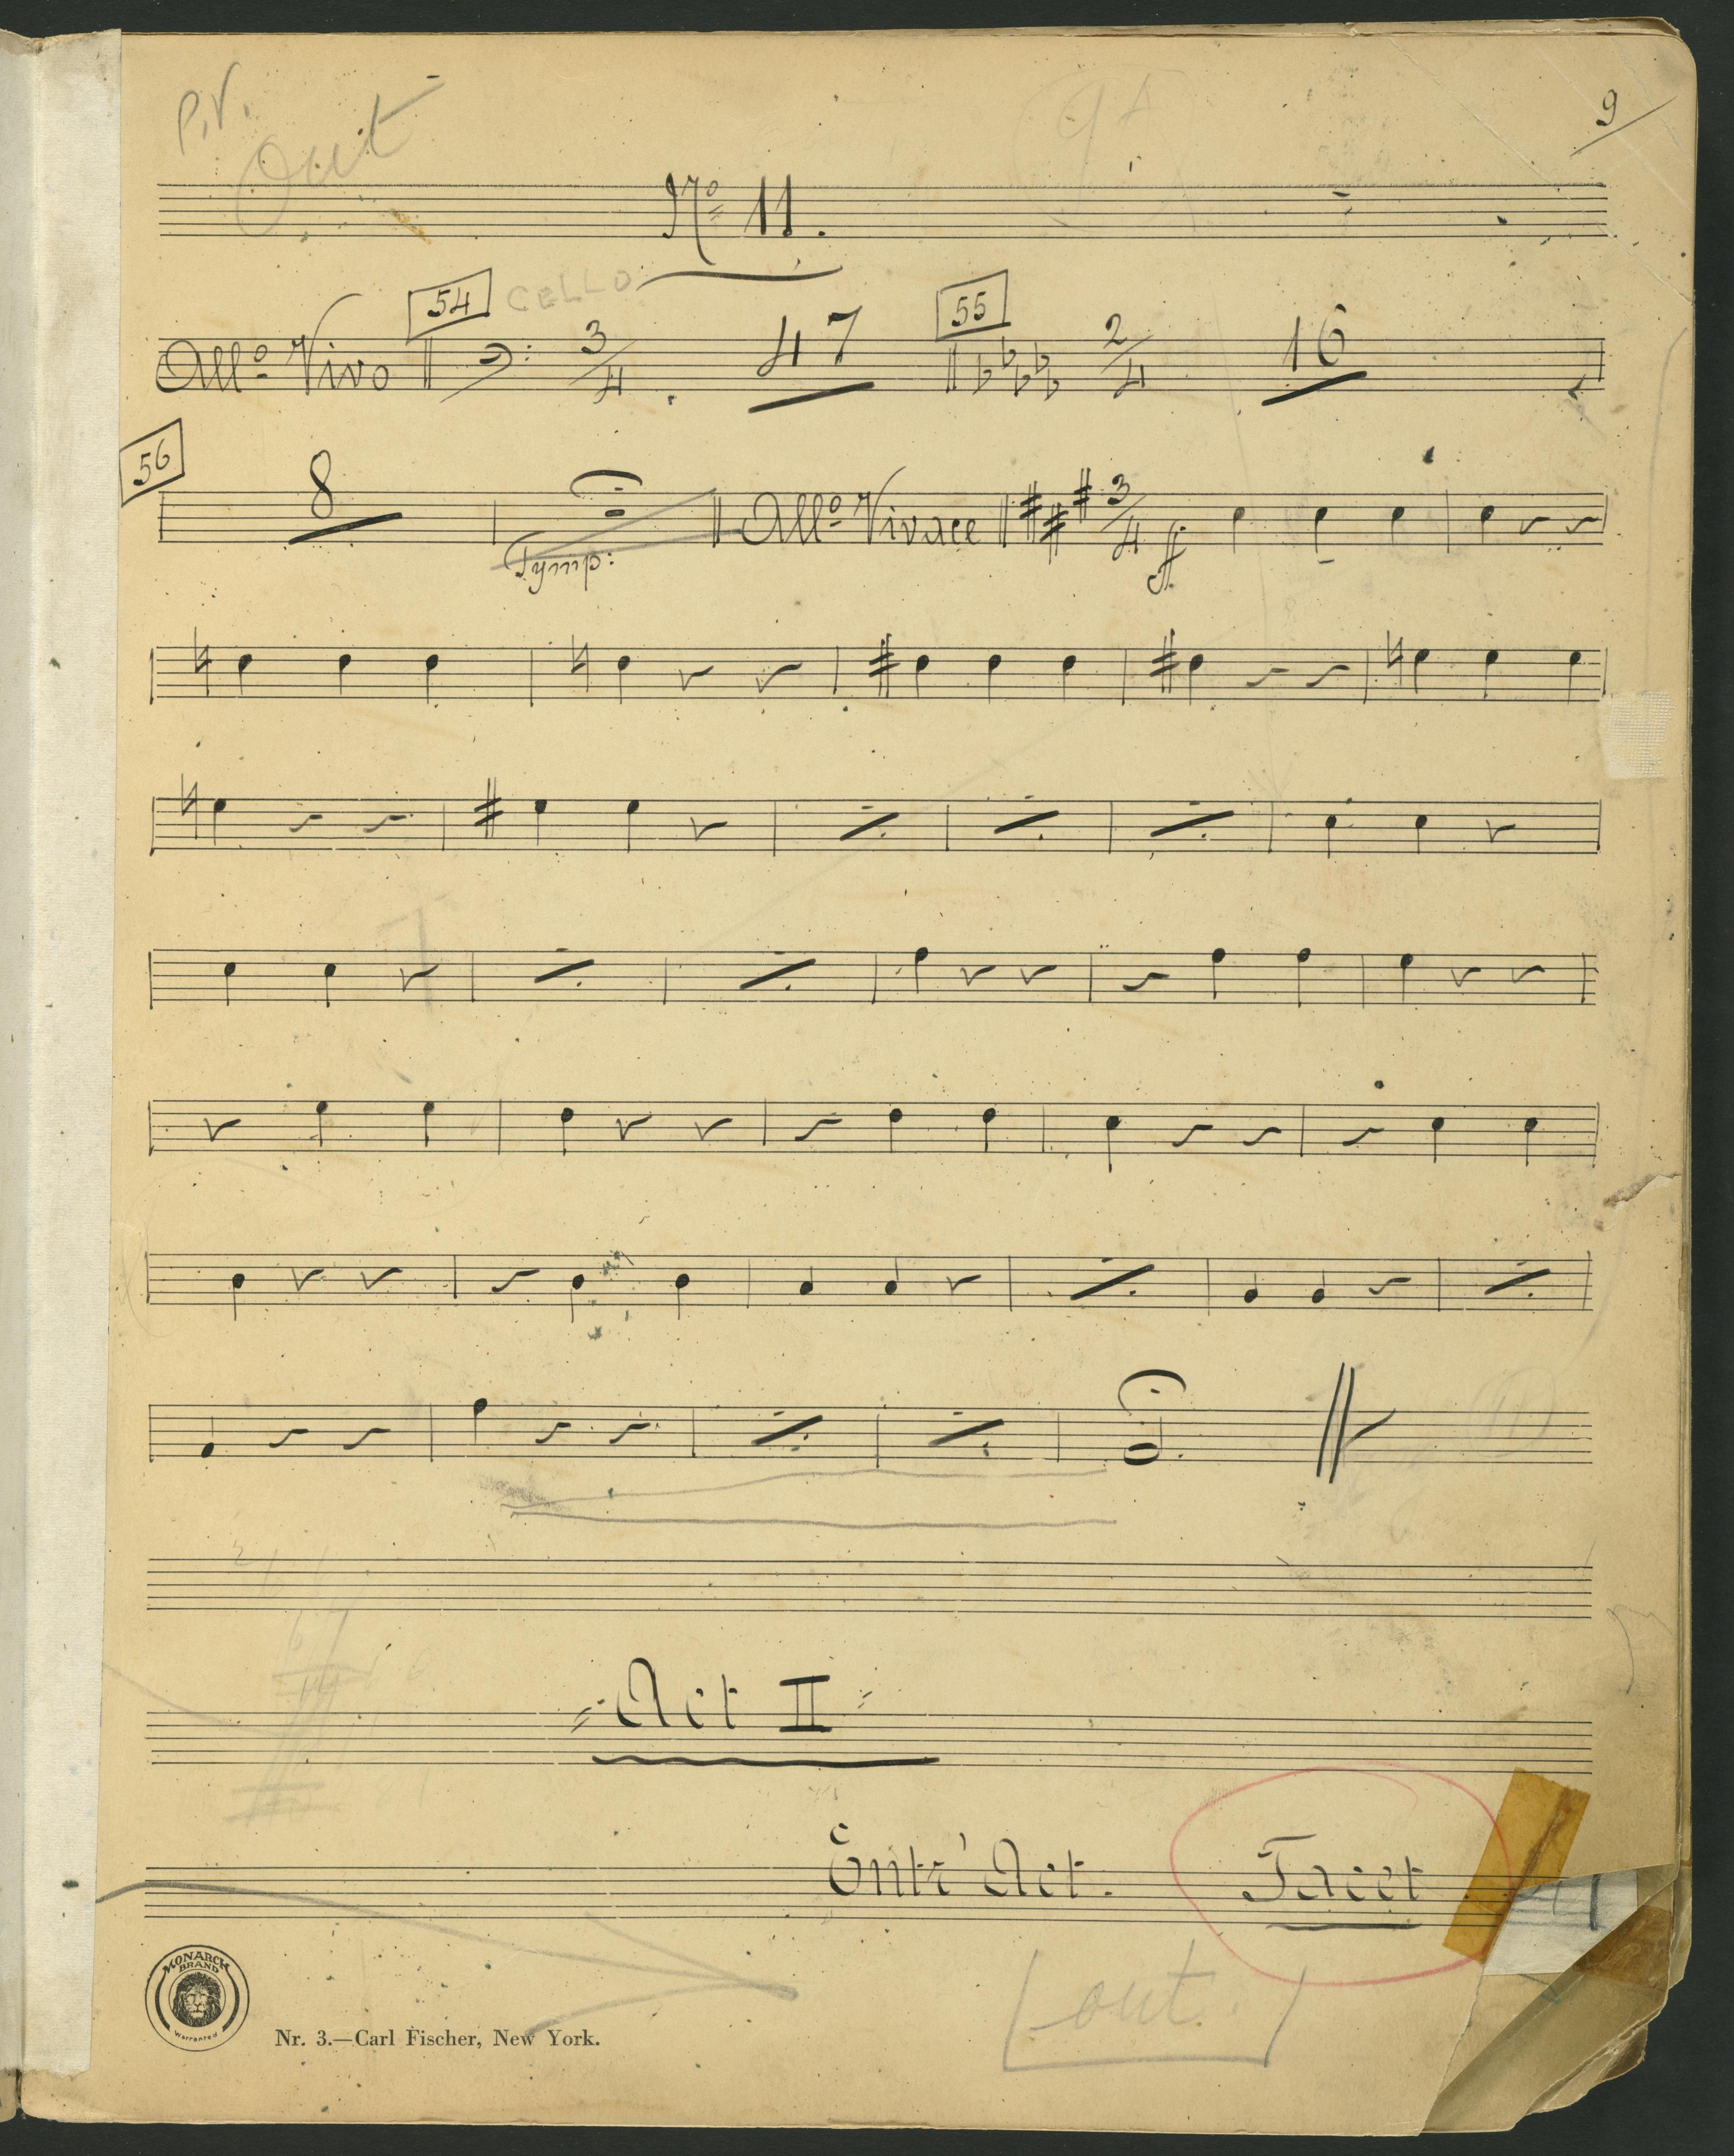 P.V.
Out
9A
9
No 11.
54
CELLO
55
Allo Vivo
3/4
47
2/4
16
56
8
Tymp:
Allo Vivace
3/4
ff
7
Act II
Entr'Act. Tacet
out.
MONARCH BRAND
Warranted
Nr. 3.—Carl Fischer, New York.